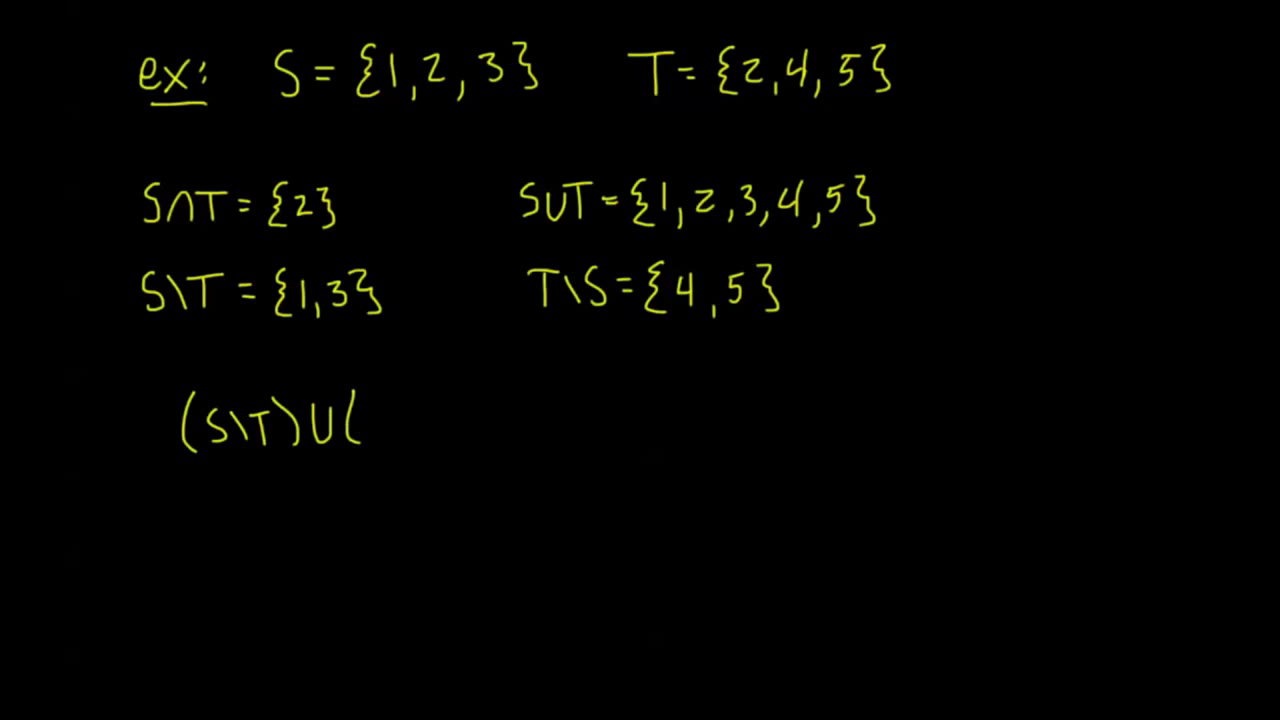 ex: S = {1, 2, 3} T = {2, 4, 5}
S∩T = {2} S∪T = {1, 2, 3, 4, 5}
S\T = {1, 3} T\S = {4, 5}
(S\T)∪(